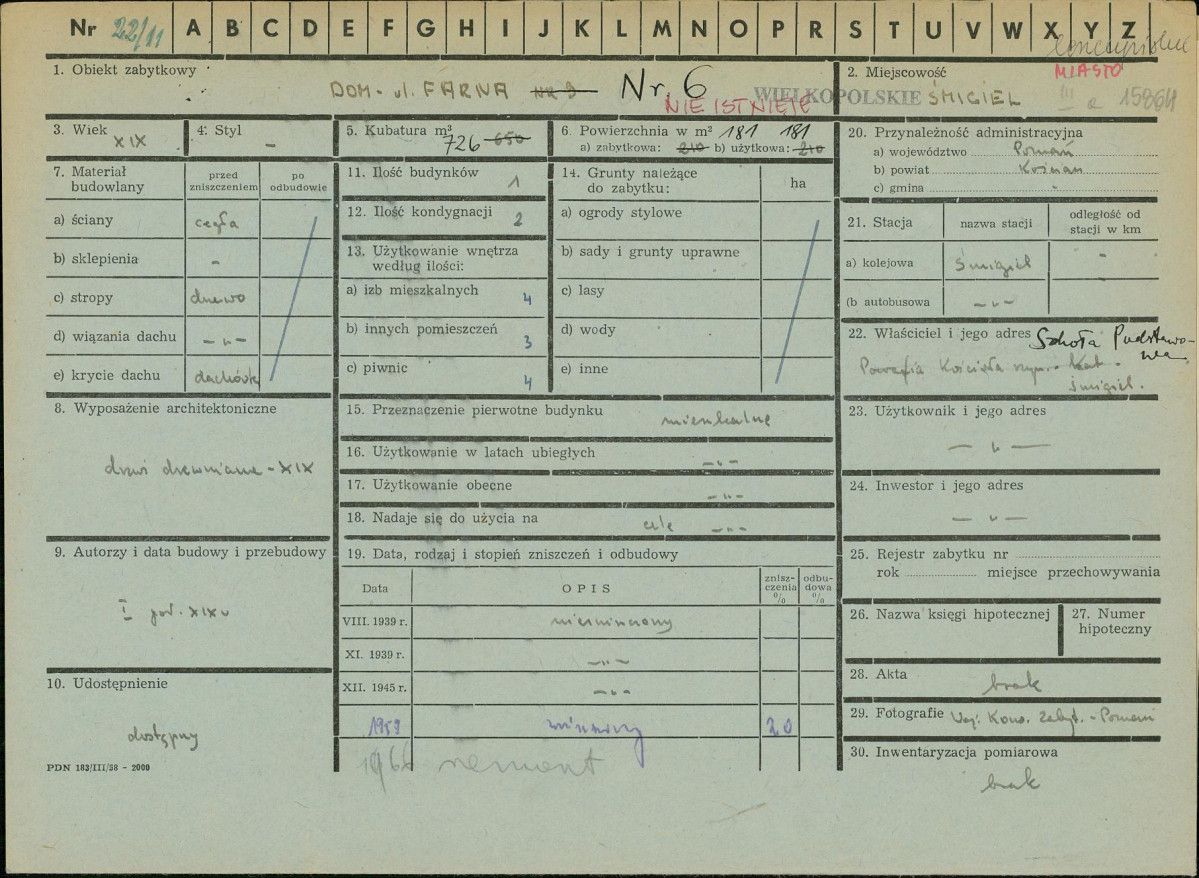 Nr 22/11 A B C D E F G H I J K L M N O P R S T U V W X Y Z
1. Obiekt zabytkowy
DOM - ul. FARNA NR 9 Nr. 6
NIE ISTNIEJE
2. Miejscowość
MIASTO
WIELKOPOLSKIE ŚMIGIEL
III a 15864
3. Wiek
XIX
4. Styl
-
5. Kubatura m³
726 650
6. Powierzchnia w m² 181 181
a) zabytkowa: 210 b) użytkowa: 210
7. Materiał budowlany
przed zniszczeniem
po odbudowie
a) ściany cegła
b) sklepienia -
c) stropy drewo
d) wiązania dachu -„-
e) krycie dachu dachówk
8. Wyposażenie architektoniczne
drzwi drewniane - XIX
9. Autorzy i data budowy i przebudowy
I poł. XIX w
10. Udostępnienie
dostępny
PDN 183/III/58 - 2000
11. Ilość budynków 1
12. Ilość kondygnacji 2
13. Użytkowanie wnętrza
według ilości:
a) izb mieszkalnych 4
b) innych pomieszczeń 3
c) piwnic 4
14. Grunty należące
do zabytku:
ha
a) ogrody stylowe
b) sady i grunty uprawne
c) lasy
d) wody
e) inne
15. Przeznaczenie pierwotne budynku mieszkalne
16. Użytkowanie w latach ubiegłych -„-
17. Użytkowanie obecne -„-
18. Nadaje się do użycia na cele -„-
19. Data, rodzaj i stopień zniszczeń i odbudowy
Data
OPIS
znisz-
czenia
%
odbu-
dowa
%
VIII. 1939 r. niezniszczony
XI. 1939 r. -„-
XII. 1945 r. -„-
1959 zniszczony 20
1966 remont
20. Przynależność administracyjna
a) województwo Poznań
b) powiat Kościan
c) gmina "
21. Stacja
nazwa stacji
odległość od
stacji w km
a) kolejowa Śmigiel -
(b autobusowa -„-
22. Właściciel i jego adres Szkoła Podstawo-
wa
Parafia Kościoła rzym. - kat -
Śmigiel.
23. Użytkownik i jego adres
- „ -
24. Inwestor i jego adres
- „ -
25. Rejestr zabytku nr
rok miejsce przechowywania
26. Nazwa księgi hipotecznej
27. Numer
hipoteczny
28. Akta
brak
29. Fotografie Woj. Kons. Zabyt. - Poznań
30. Inwentaryzacja pomiarowa
brak